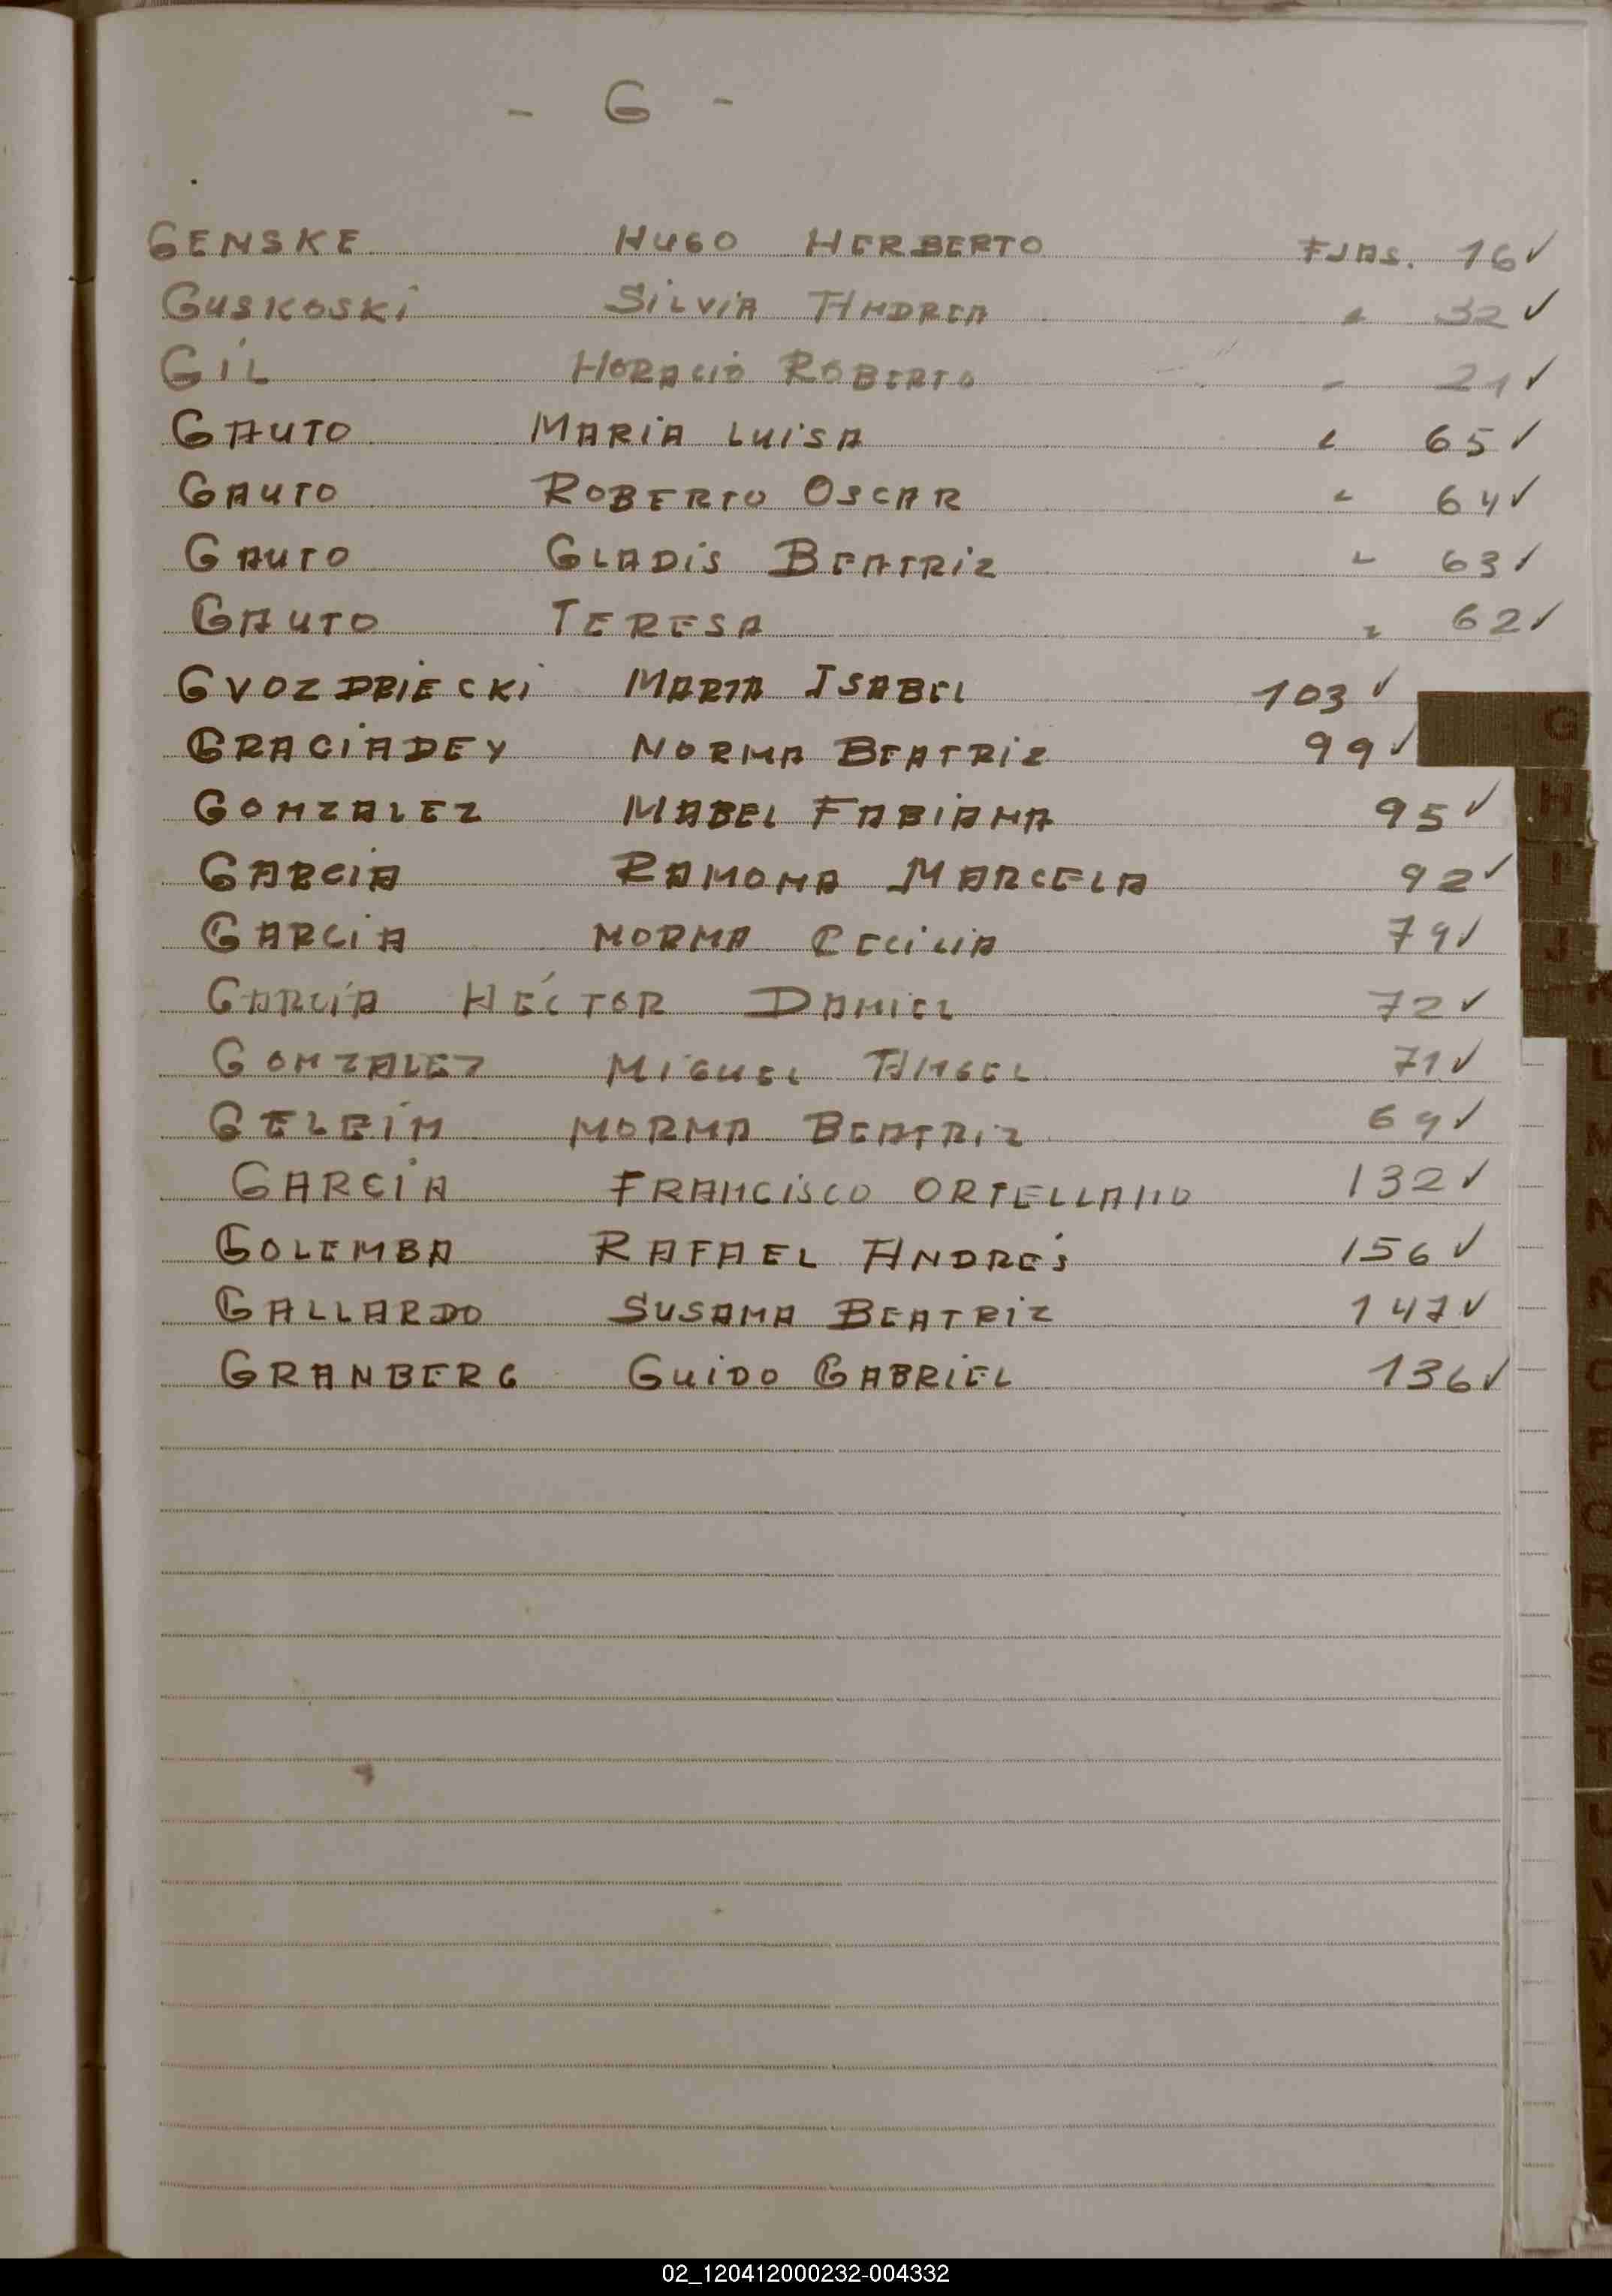 - G -
GENSKE HUGO HERBERTO FJAS. 16 ✓
GUSKOSKI SILVIA ANDREA " 32 ✓
GIL HORACIO ROBERTO " 21 ✓
GAUTO MARIA LUISA " 65 ✓
GAUTO ROBERTO OSCAR " 64 ✓
GAUTO GLADIS BEATRIZ " 63 ✓
GAUTO TERESA " 62 ✓
GVOZDRIECKI MARIA ISABEL 103 ✓
GRACIADEY NORMA BEATRIZ 99 ✓
GONZALEZ MABEL FABIANA 95 ✓
GARCIA RAMONA MARCELA 92 ✓
GARCIA NORMA CECILIA 79 ✓
GARCÍA HÉCTOR DANIEL 72 ✓
GONZALEZ MIGUEL ANGEL 71 ✓
GELEIN NORMA BEATRIZ 69 ✓
GARCIA FRANCISCO ORTELLANO 132 ✓
GOLEMBA RAFAEL ANDRÉS 156 ✓
GALLARDO SUSANA BEATRIZ 147 ✓
GRANBERG GUIDO GABRIEL 136 ✓
G
H
I
J
K
L
M
N
Ñ
O
P
Q
R
S
T
U
V
02_120412000232-004332